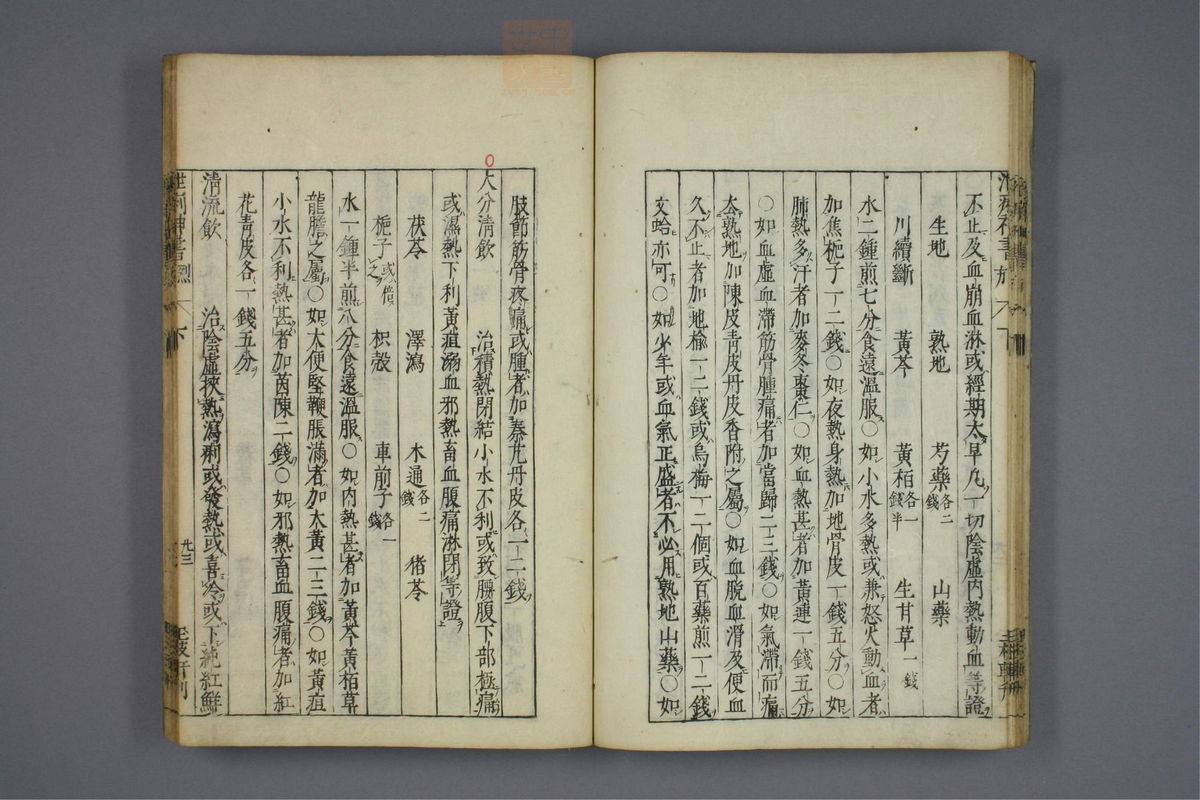 不止及血崩血淋或經期太早凡一切陰虛内熱動血等證
生地 熟地 芍藥各二錢 山藥
川續斷 黃芩 黃栢各一錢半 生甘草一錢
水二鍾煎七分食遠溫服○如小水多熱或兼怒火動血者
加焦梔子一二錢○如夜熱身熱加地骨皮一錢五分○如
肺熱多汗者加麥冬棗仁○如血熱甚者加黃連一錢五分
○如血虛血滯筋骨腫痛者加當歸二三錢○如氣滯而痛
去熟地加陳皮青皮丹皮香附之屬○如血脫血滑及便血
久不止者加地榆一二錢或烏梅一二個或百藥煎一二錢
文蛤亦可○如少年或血氣正盛者不必用熟地山藥○如
肢節筋骨疼痛或腫者加秦艽丹皮各一二錢
大分清飲 治積熱閉結小水不利或致腰腹下部極痛
或濕熱下利黃疸溺血邪熱畜血腹痛淋閉等證
茯苓 澤瀉 木通各二錢 猪苓
梔子或倍之 枳殼 車前子各一錢
水一鍾半煎八分食遠溫服○如内熱甚者加黃芩黃栢草
龍膽之屬○如大便堅鞕脹滿者加大黃二三錢○如黃疸
小水不利熱甚者加茵陳二錢○如邪熱畜血腹痛者加紅
花青皮各一錢五分
清流飲 治陰虛挾熱瀉痢或發熱或喜冷或下純紅鮮